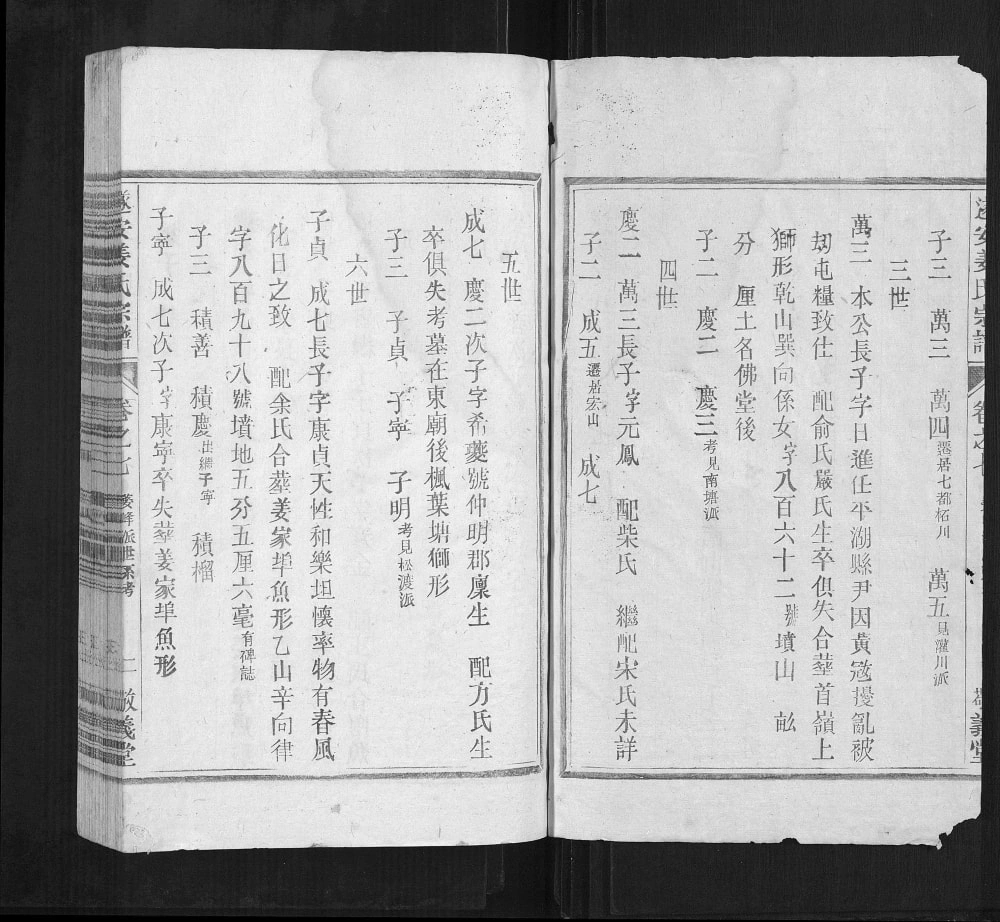 遂安姜氏宗譜 卷之七 敬義堂
子三 萬三 萬四遷居七都柘川 萬五見灌川派
三世
萬三 本公長子字日進任平湖縣尹因黃𡨥擾亂被
刼屯糧致仕 配俞氏嚴氏生卒俱失合塟首嶺上
獅形乾山巽向係女字八百六十二號墳山 畝
分 厘土名佛堂後
子二 慶二 慶三考見南塘派
四世
慶二 萬三長子字元鳳 配柴氏 繼配宋氏未詳
子二 成五遷居宏山 成七
五世
成七 慶二次子字希夔號仲明郡廩生 配方氏生
卒俱失考墓在東廟後楓葉塘獅形
子三 子貞 子寧 子明考見松渡派
六世
子貞 成七長子字康貞天性和樂坦懷率物有春風
化日之致 配余氏合塟姜家埠魚形乙山辛向律
字八百九十八號墳地五分五厘六毫有碑誌
子三 積善 積慶出繼子寧 積榴
子寧 成七次子字康寧卒失塟姜家埠魚形
遂安姜氏宗譜 卷之七 派世系考 二 敬義堂